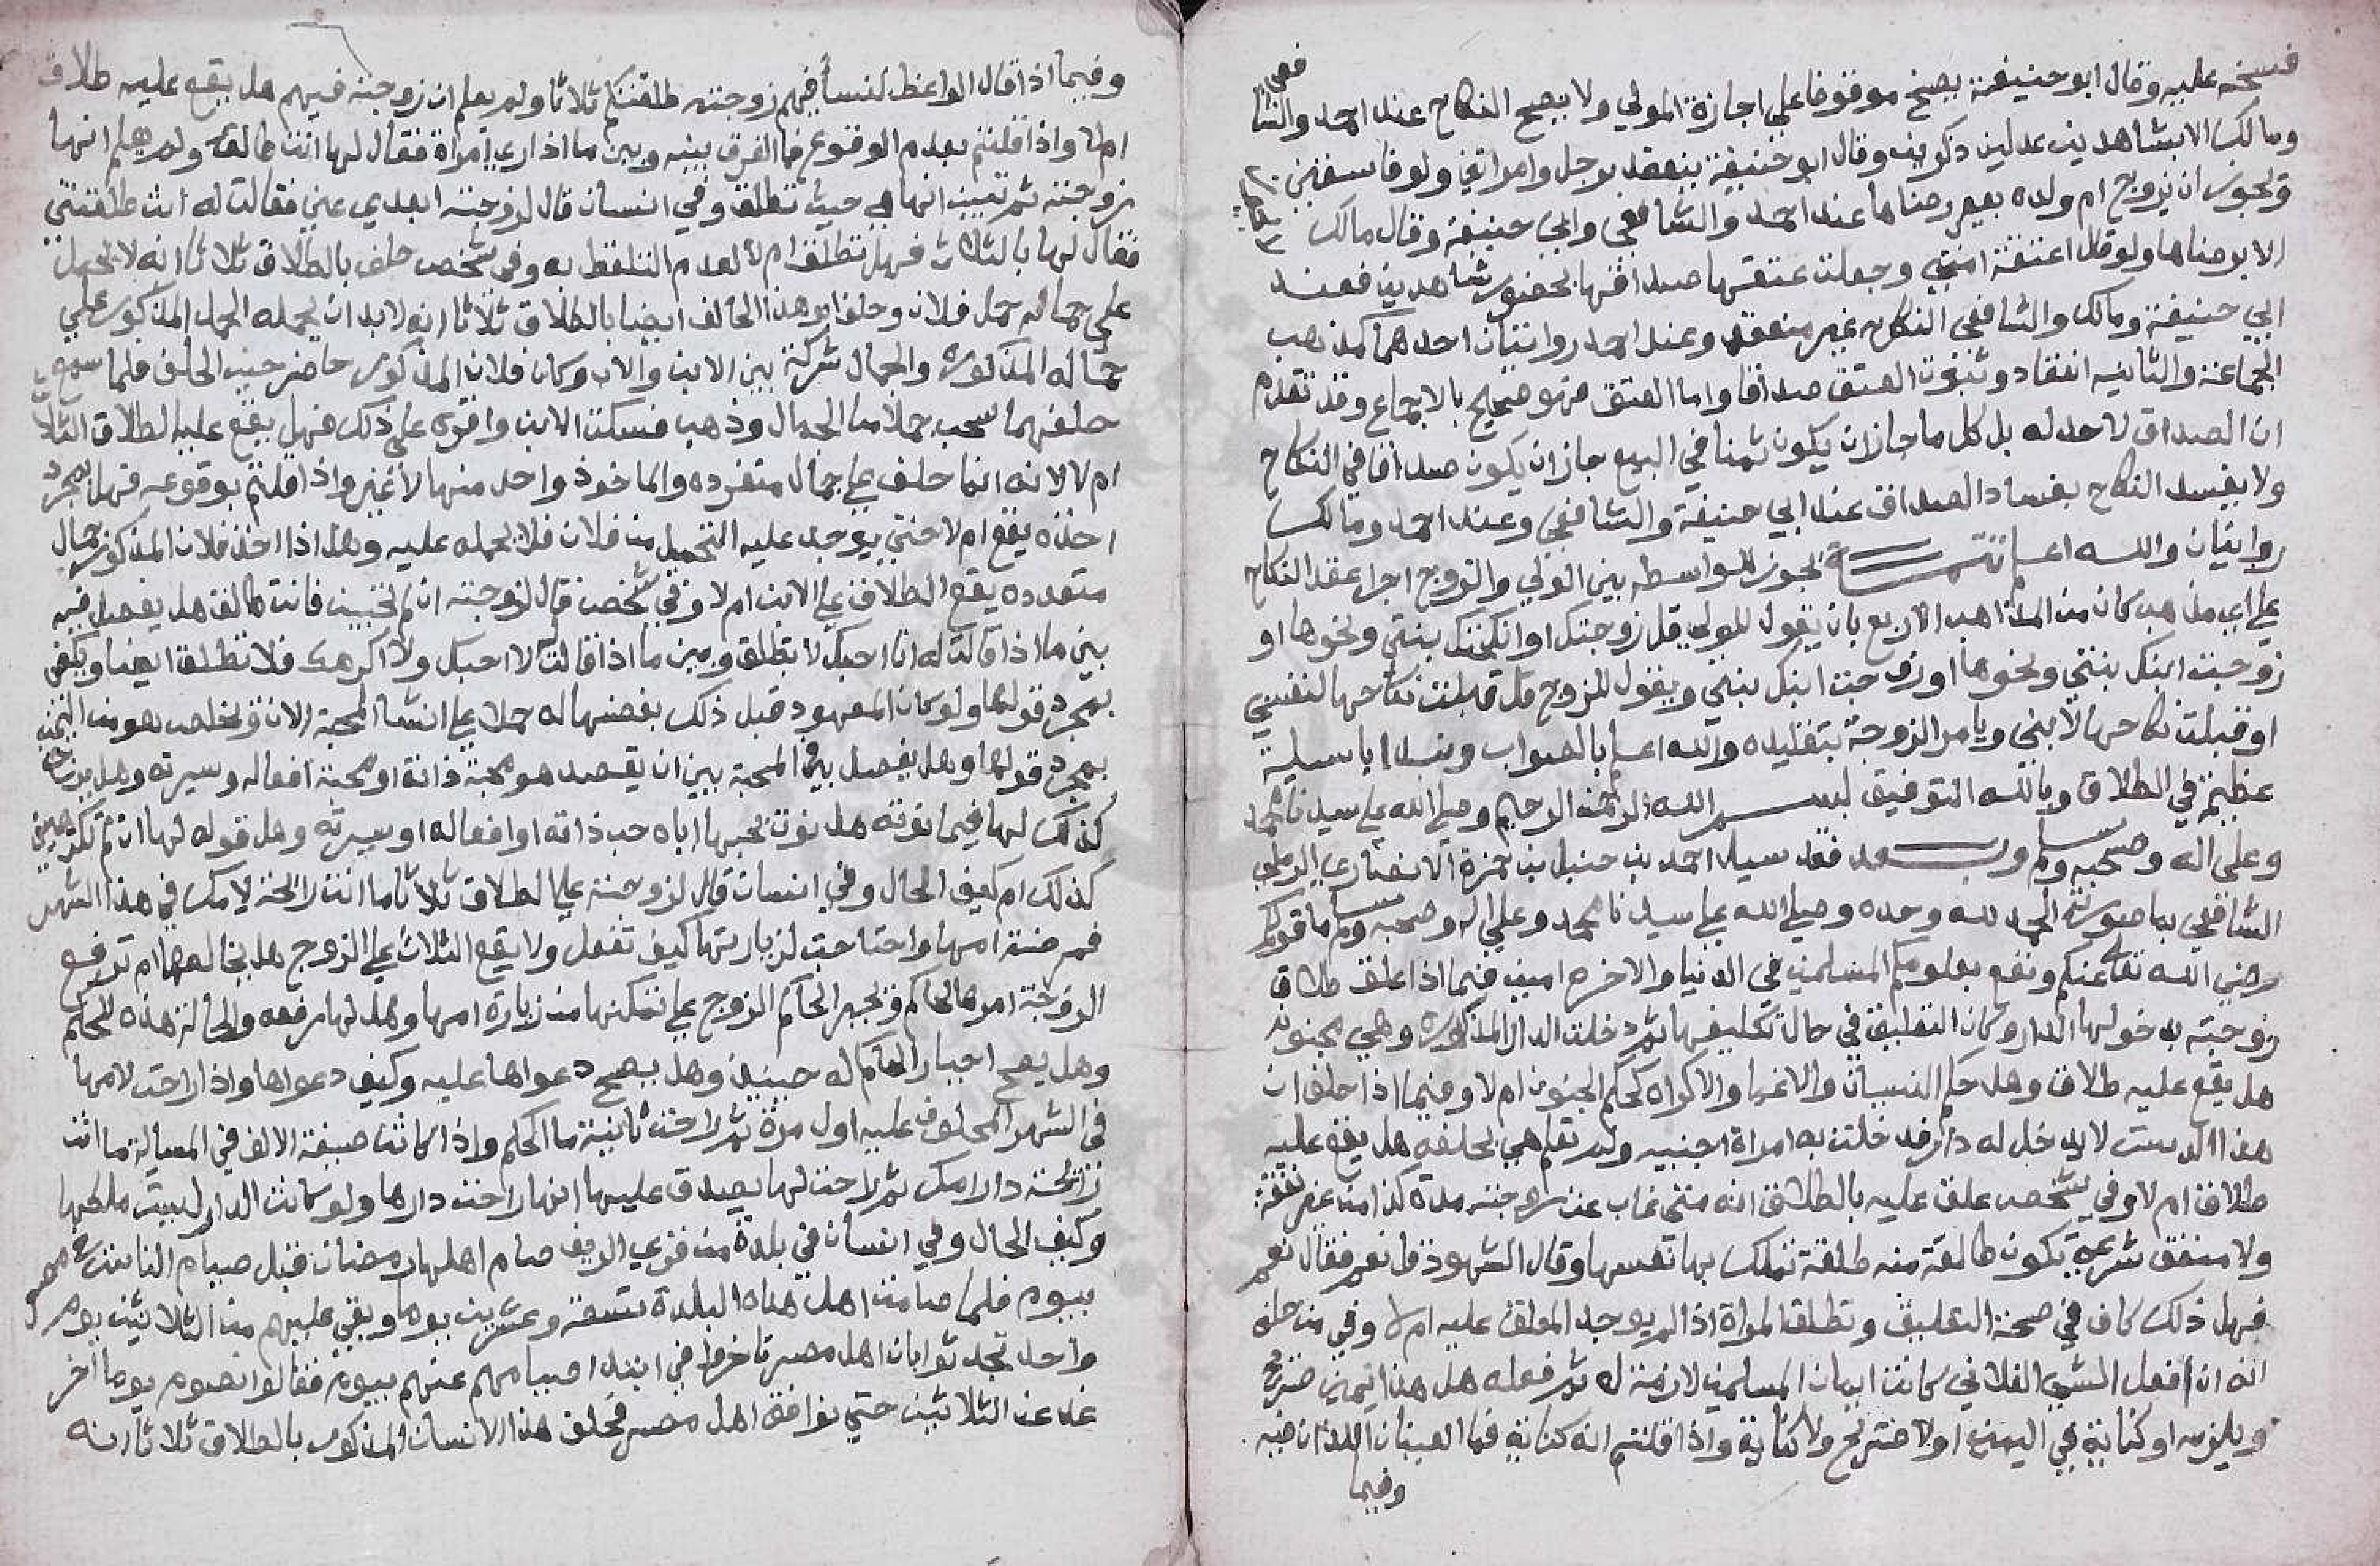 فسخه عليه وقال ابو حنيفة يصح موقوفا على اجازة المولي ولا يصح النكاح عند احمد والشافعي
ومالك الا بشاهدين عدلين ذكرين وقال ابو حنيفة ينعقد برجل وامراتين ولو فاسقين
ويجوز ان يزوج ام ولده بغير رضاها عند احمد والشافعي وابي حنيفة وقال مالك
الا برضاها ولو قال اعتقت امتي وجعلت عتقها صداقها بحضور شاهدين فعند
ابي حنيفة ومالك والشافعي النكاح غير منعقد وعند احمد روايتان احدهما كمذهب
الجماعة والثانيه انعقاد وثبوت العتق صداقا واما العتق فهو صحيح بالاجماع وقد تقدم
ان الصداق لا حد له بل كل ما جاز ان يكون ثمنا في البيع جاز ان يكون صداقا في النكاح
ولا يفسد النكاح بفساد الصداق عند ابي حنيفة والشافعي وعند احمد ومالك
روايتان والله اعلم تتمة يجوز للواسطه بين الولي والزوج اجرا عقد النكاح
على اي مذهب كان من المذاهب الاربع بان يقول للولي قل زوجتك او انكحتك بنتي ونحوها او
زوجت ابنك بنتي ونحوها او زوجت ابنك بنتي ويقول للزوج قل قبلت نكاحها لنفسي
او قبلت نكاحها لابني ويامر الزوجة بتقليده والله اعلم بالصواب
عظيمة في الطلاق وبالله التوفيق بسم الله الرحمن الرحيم وصلى الله على سيدنا محمد
وعلى اله وصحبه وسلم وبعد فقد سيل احمد بن حنبل بن حمزة الانصاري الرملي
الشافعي بما صورته الحمد لله وحده وصلى الله على سيدنا محمد وعلى اله وصحبه وسلم ما قولكم
رضي الله تعالى عنكم ونفع بعلومكم المسلمين في الدنيا والاخره امين فيما اذا علق طلاق
زوجته بدخولها الدار وكان التعليق في حال تكليفها ثم دخلت الدار المذكوره وهي مجنونه
هل يقع عليه طلاق وهل حكم النسيان والاغما والاكراه كحكم الجنون ام لا وفيما اذا حلف ان
هذا الدست لا يدخل له دار فدخلت به امراة اجنبيه ولم تعلم هي بحلفه هل يقع عليه
طلاق ام لا وفي شخص علق عليه بالطلاق انه متى غاب عن زوجته مدة كذا من غير نفقة
ولا منفق شرعي تكون طالقة منه طلقة تملك بها نفسها وقال الشهود قل نعم فقال نعم
فهل ذلك كاف في صحة التعليق وتطلق المراة اذا لم يوجد المعلق عليه ام لا وفي من حلف
انه ان فعل الشي الفلاني كانت ايمان المسلمين لازمة له ثم فعله هل هذا اليمين صريح
ويلزمه او كناية في اليمين او لا صريح ولا كناية واذا قلتم انه كناية فما
وفيما
وفيما اذا قال الواعظ لنسا فيهم زوجته طلقتكم ثلاثا ولم يعلم ان زوجته فيهم هل يقع عليه طلاق
ام لا واذا قلتم بعدم الوقوع فما الفرق بينه وبين ما اذا راي امراة فقال لها انت طالق ولم يعلم انها
زوجته ثم تبين انها هي حيث تطلق وفي انسان قال لزوجته ابعدي عني فقالت له انت طلقتني
فقال لها بالثلاث فهل تطلق ام لا لعدم التلفظ به وفي شخص حلف بالطلاق ثلاثا انه لا يحمل
على جماله حمل فلان وحلف ابو هذا الحالف ايضا بالطلاق ثلاثا انه لابد ان يحمله الحمل المذكور علي
جماله المذكوره والجمال شركة بين الابن والاب وكان فلان المذكور حاضر حين الحلف فلما سمع
حلفهما سحب جملا من الجمال وذهب فسكت الابن واقره على ذلك فهل يقع عليه الطلاق الثلاث
ام لا لانه انما حلف على جمال متفرده والماخوذ واحد منها لا غير واذا قلتم بوقوعه فهل بمجرد
اخذه يقع ام لا حتي يوجد عليه التحميل من فلان فلا يحمله عليه وهل اذا اخذ فلان المذكور جمال
متعدده يقع الطلاق على الابن ام لا وفي شخص قال لزوجته ان لم تحبين فانت طالق هل يفصل فيه
بين ما اذا قالت له انا احبك لا تطلق وبين ما اذا قالت لا احبك ولا اكرهك فلا تطلق ايضا ويكفي
بمجرد قولها ولو كان المعهود قبل ذلك بغضها له حملا على انشا المحبة الان
بمجرد قولها وهل يفصل في المحبة بين ان يقصد هو محبة ذاته او محبة افعاله وسيرته وهل
كذلك لها فيما نوته هل نوت بحبها اياه حب ذاته او افعاله او سيرته وهل قوله لها ان لم تكرهيني
كذلك ام كيف الحال وفي انسان قال لزوجته علي الطلاق ثلاثا ما انت رايحة لامك في هذا الشهر
فمرضت امها واحتاجت لزيارتها كيف تفعل ولا يقع الثلاث علي الزوج هل يخالعها ام ترفع
الزوجة امرها لحاكم ويجبر الحاكم الزوج على تمكنها من زيارة امها وهل لها رفعه والحالة هذه للحاكم
وهل يصح اجبار الحاكم له حينيذ وهل يصح دعواها عليه وكيف دعواها واذا راحت لامها
في الشهر المحلوف عليه اول مرة ثم راحت ثانية ما الحكم واذا كانت صيغة الالف في المسالة ما انت
رايحة دار امك ثم راحت لها يصدق عليها انها راحت دارها ولو كانت الدار ليست ملكها
وكيف الحال وفي انسان في بلدة من قري الريف صام اهلها رمضان قبل صيام الناس في مصر
بيوم فلما صامت اهل هذه البلدة تسعة وعشرين يوما وبقي عليهم من الثلاثين يوم
واحد اهل مصر تاخروا في ابتدا صيامهم عنهم بيوم فقالوا نصوم يوما اخر
غد عن الثلاثين حتي نوافق اهل مصر فحلف هذا الانسان المذكور بالطلاق ثلاثا انه